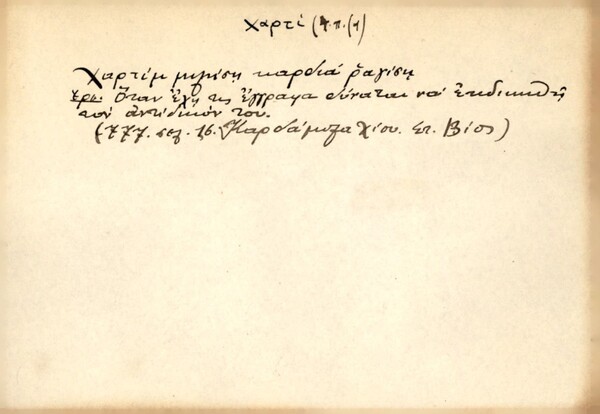 χαρτί (λ.π.(1)
Χαρτίμ μιμίση καρδιά ῥαγίση
Ερμ. Ὅταν ἔχῃ τις ἔγγραφα δύναται νά ἐκδικηθῇ
τόν ἀντίδικόν του.
σελ. 76. Καρδάμυλα Χίου. Στ. Βίος)